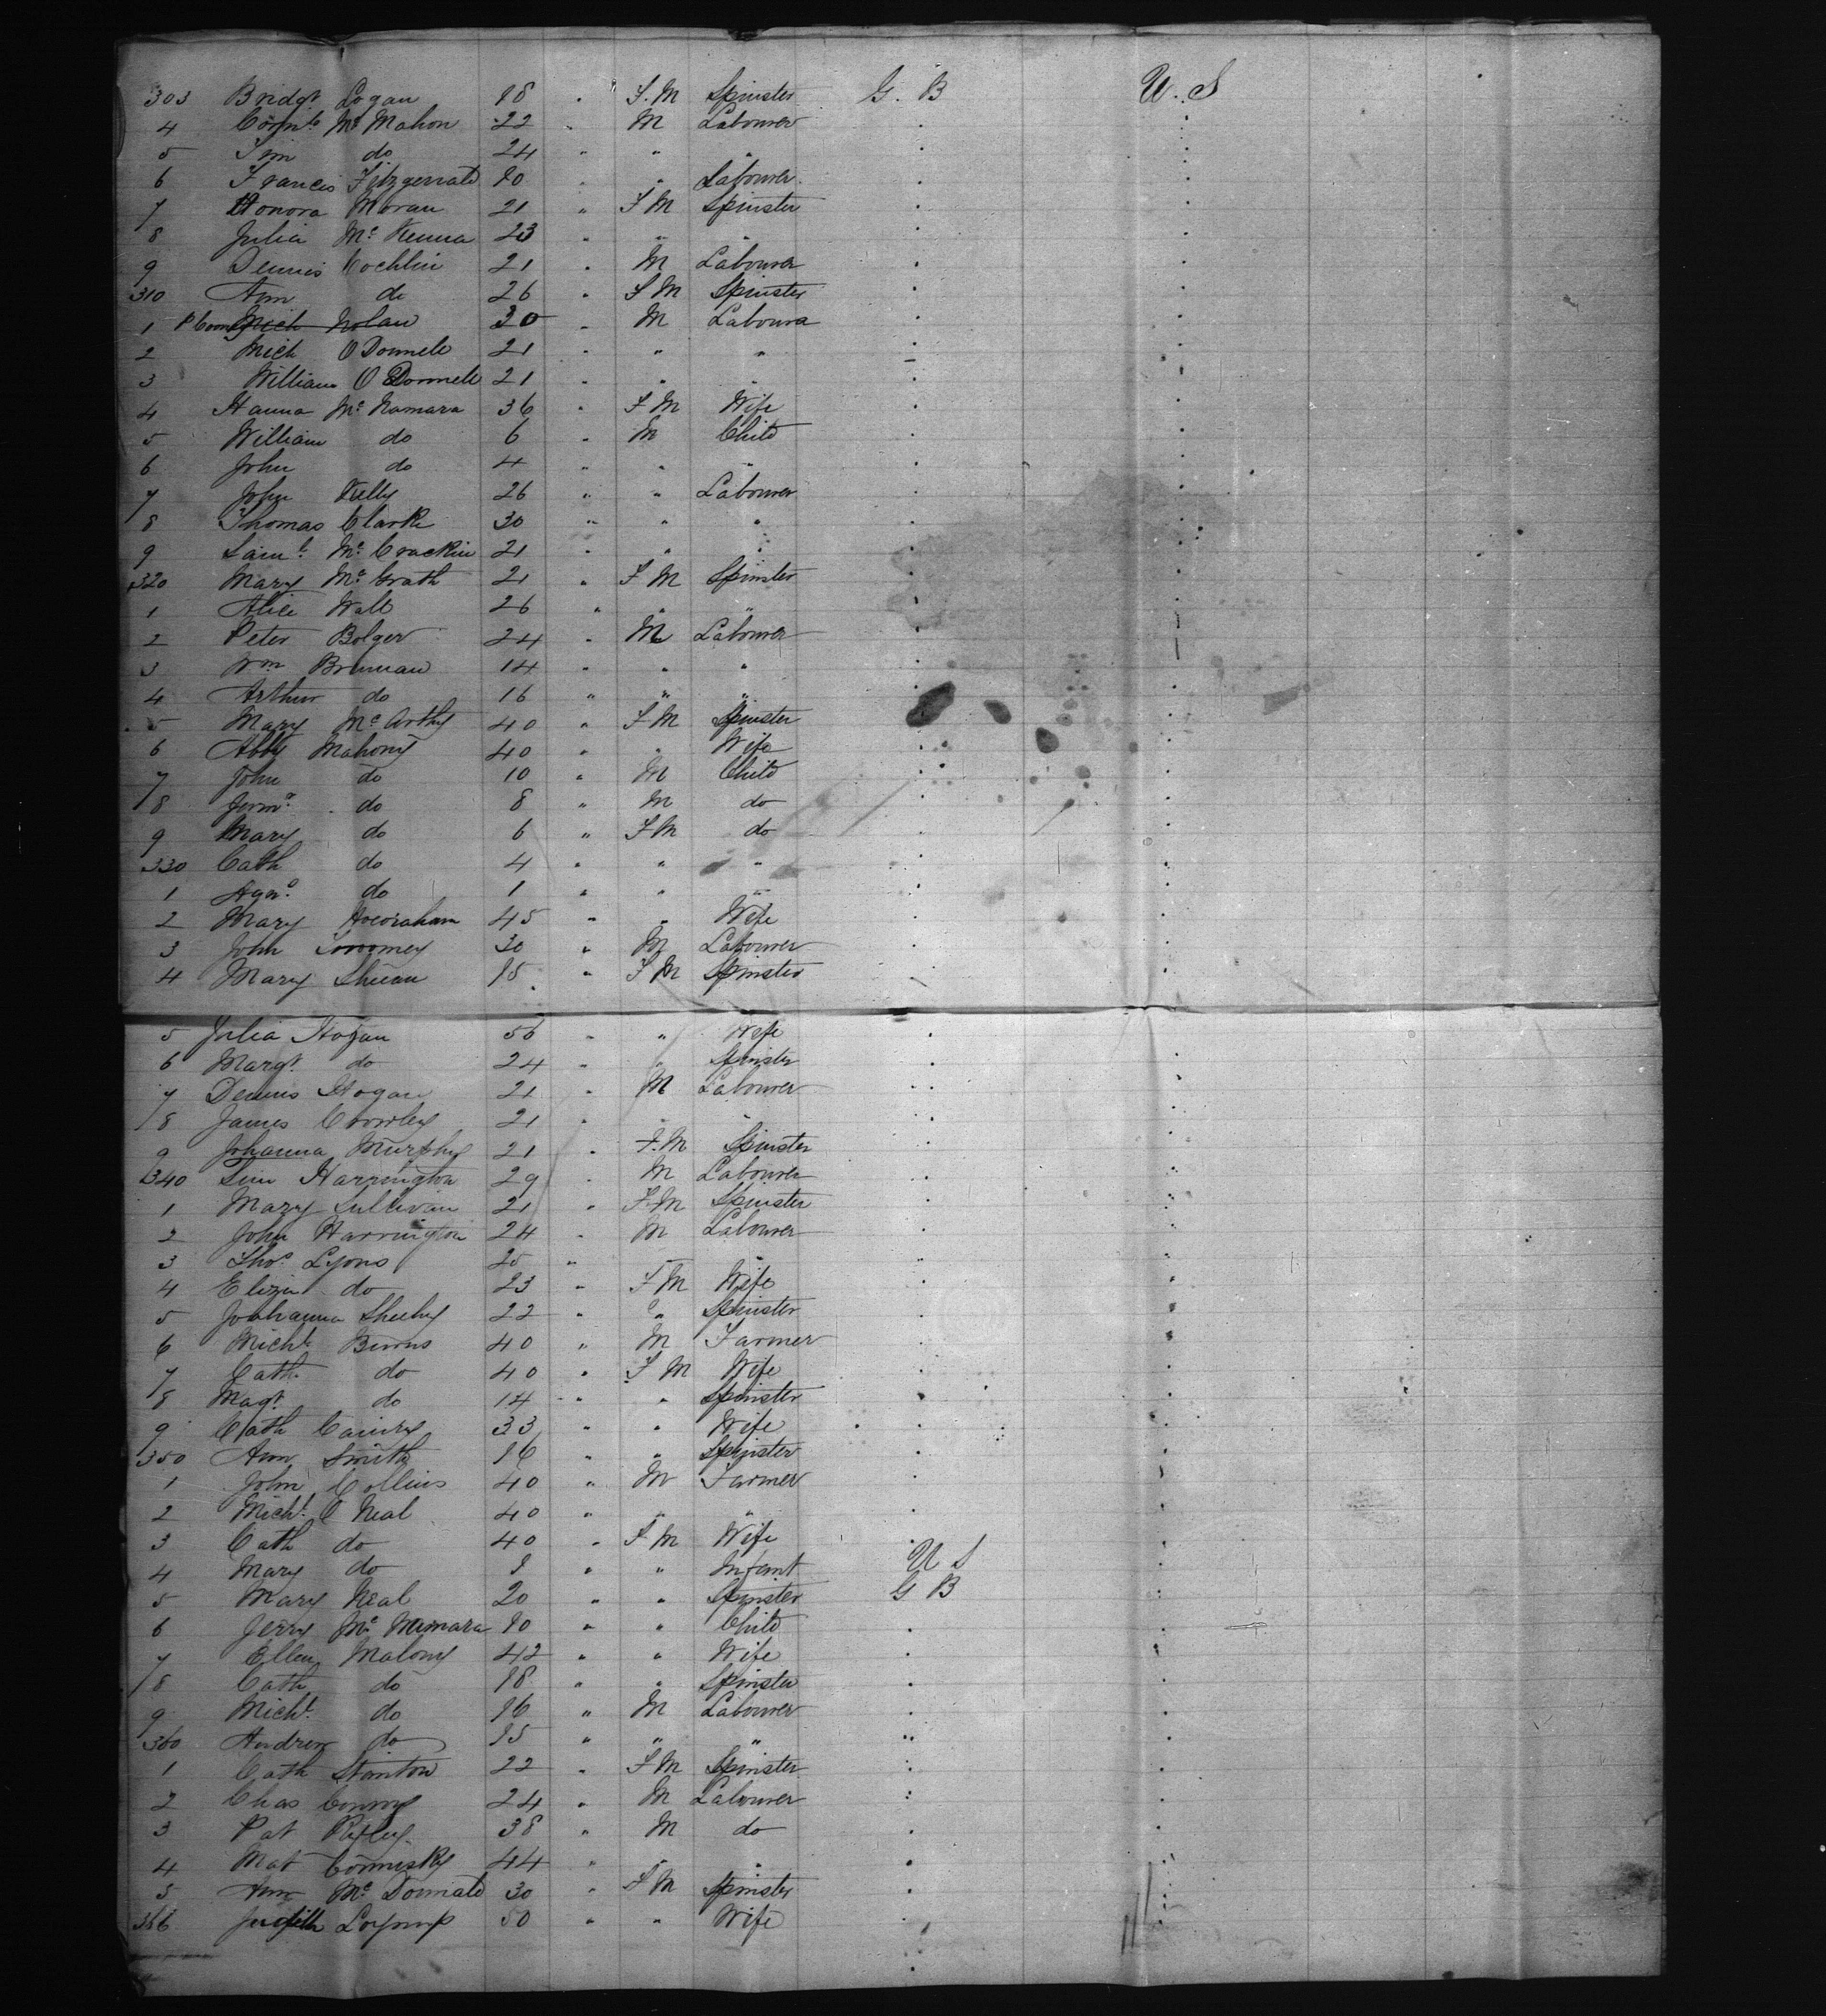 303 Bridgt Logan 18 " F. M Spinster G. B U. S
4 Corns Mc Mahon 22 " M Labourer
5 Tim do 24 " " "
6 Francis Fitzgerrald 10 " " Labourer
7 Honora Moran 21 " F M Spinster
8 Julia Mc Kenna 23 " " "
9 Dennis Cochlin 21 " M Labourer
310 Ann do 26 " F M Spinster
1 Mich Nolan 30 " M Labourer
2 Mich O Donnell 21 " " "
3 William O Donnell 21 " " "
4 Hanna Mc Namara 36 " F M Wife
5 William do 6 " M Child
6 John do 4 " " "
7 John Kelly 26 " " Labourer
8 Thomas Clarke 30 " " "
9 Saml Mc Crackin 21 " " "
320 Mary Mc Grath 21 " F M Spinster
1 Alice Wall 26 " " "
2 Peter Bolger 24 " M Labourer
3 Wm Brennan 14 " " "
4 Arthur do 16 " " "
5 Mary Mc Arthy 40 " F M Spinster
6 Abby Mahony 40 " " Wife
7 John do 10 " M Child
8 Jerma do 8 " M do
9 Mary do 6 " F M do
330 Cath do 4 " " "
1 do 1 " " "
2 Mary 45 " " Wife
3 John Toomey 30 " M Labourer
4 Mary Sheean 15 " F M Spinster
5 Julia Hogan 56 " " Wife
6 Margt do 24 " " Spinster
7 Dennis Hogan 21 " M Labourer
8 James Crowley 21 " " "
9 Johanna Murphy 21 " F. M Spinster
340 Tim Harrington 29 " M Labourer
1 Mary Sullivan 21 " F M Spinster
2 John Harrington 24 " M Labourer
3 Thos Lyons 25 " " "
4 Eliza do 23 " F M Wife
5 Johanna Sheehy 22 " " Spinster
6 Michl Binns 40 " M Farmer
7 Cath do 40 " F M Wife
8 Magt do 14 " " Spinster
9 Cath 33 " " Wife
350 Ann Smith 16 " " Spinster
1 John Collins 40 " M Farmer
2 Michl O Neal 40 " " "
3 Cath do 40 " F M Wife
4 Mary do 1 " " Infant U S
5 Mary Neal 20 " " Spinster G B
6 Jerry Mc Mamara 10 " " Child
7 Ellen Malony 42 " " Wife
8 Cath do 18 " " Spinster
9 Michl do 16 " M Labourer
360 Andrew do 15 " " "
1 Cath Stanton 22 " F M Spinster
2 Chas Conroy 24 " M Labourer
3 Pat 38 " M do
4 Mat 44 " " "
5 Ann Mc Donnald 30 " F M Spinster
366 Judith 50 " " Wife